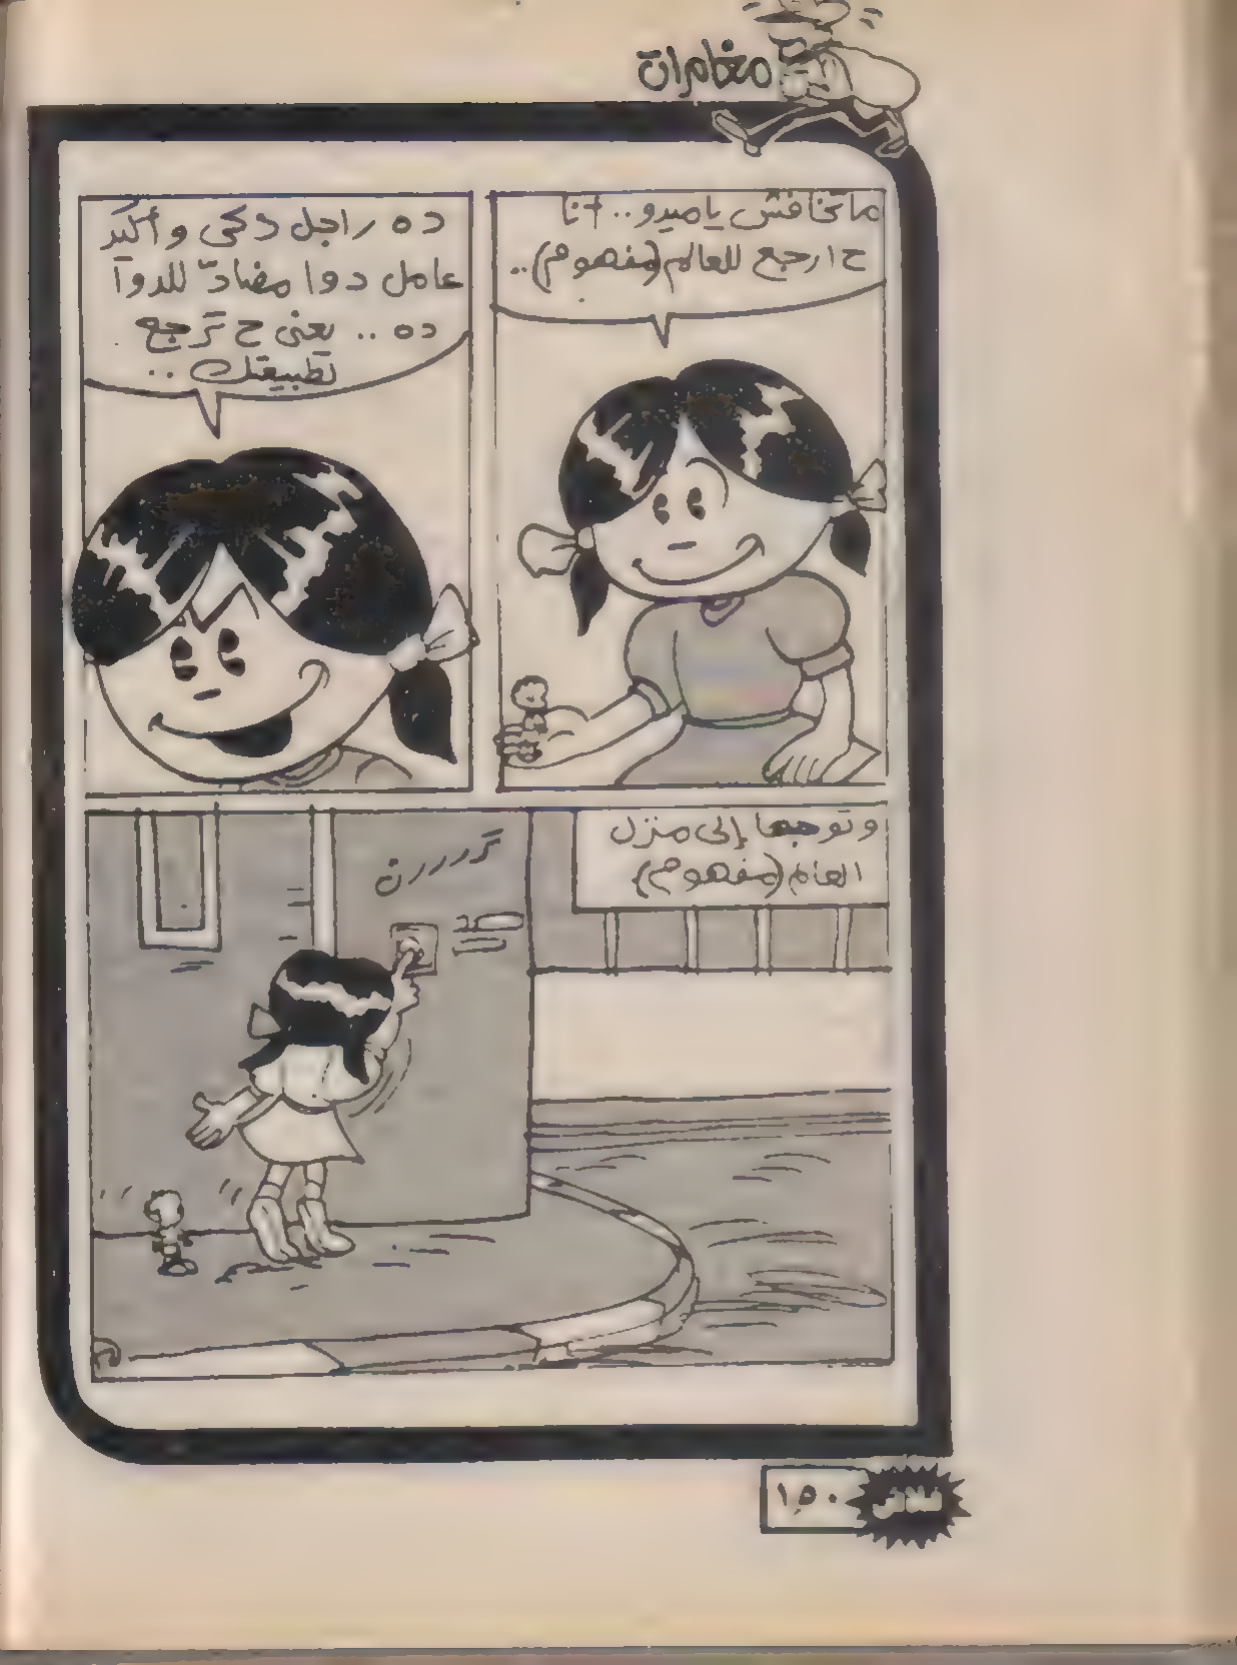 مغامرات
ماتخافش ياميدو.. أنا
ح ارجع للعالم (مفهوم)..
ده راجل ذكى وأكيد
عامل دوا مضادّ للدوا
ده .. يعنى ح ترجع
لطبيعتك ..
وتوجها إلى منزل
العالم (مفهوم)
تررررن
فلاش
١٥٠